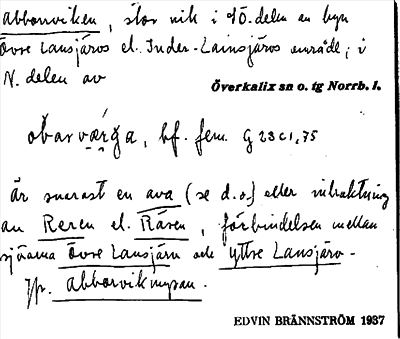 Abborviken, stor vik i NÖ. delen av byn
Övre Lansjärvs el. Inder-Lainsjärvs område; i
N. delen av
Överkalix sn o. tg Norrb. l.
bf. fem. G 23 c 1, 75
är snarast en ava (se d.o.) eller utvidgning
av Reren el. Räven, förbindelsen mellan
sjöarna Övre Lansjärv och Yttre Lansjärv.
Jfr. Abborvikmyran.
EDVIN BRÄNNSTRÖM 1937